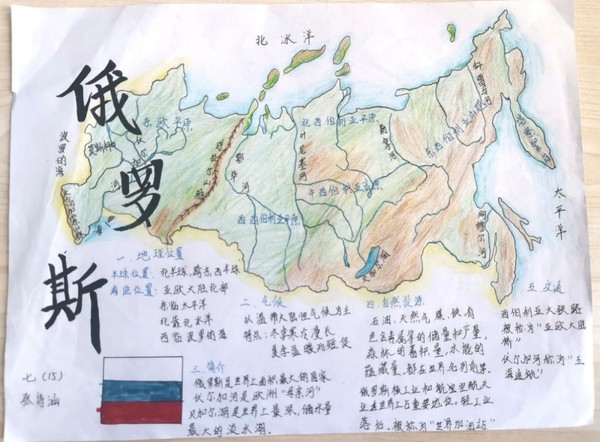 俄罗斯
北冰洋
太平洋
波罗的海
东欧平原
乌拉尔山脉
鄂毕河
叶尼塞河
北西伯利亚平原
中西伯利亚高原
西西伯利亚平原
东西伯利亚山地
勒拿河
贝加尔湖
阿穆尔河
一.地理位置
半球位置:北半球,跨东西半球
海陆位置:亚欧大陆北部
东临太平洋
北靠北冰洋
西临波罗的海
二.气候
以温带大陆性气候为主
特点:冬季寒冷漫长
夏季温暖短促
三.简介
俄罗斯是世界上面积最大的国家
伏尔加河是欧洲“母亲河”
贝加尔湖是世界上最深,储水量
最大的淡水湖.
四.自然资源
石油、天然气、煤、铁、有
色金属等的储量和产量,
森林的蓄积量,水能的
蕴藏量,都在世界名列前茅.
俄罗斯核工业和航空航天
业在世界上占重要地位,轻工业
落后.被称为“世界加油站”
五.交通
西伯利亚大铁路
被称为“亚欧大陆
桥”
伏尔加河称为“五
海通航”
七(15)